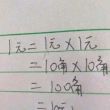 1元=1元×1元
=10角×10角
=100角
=10元